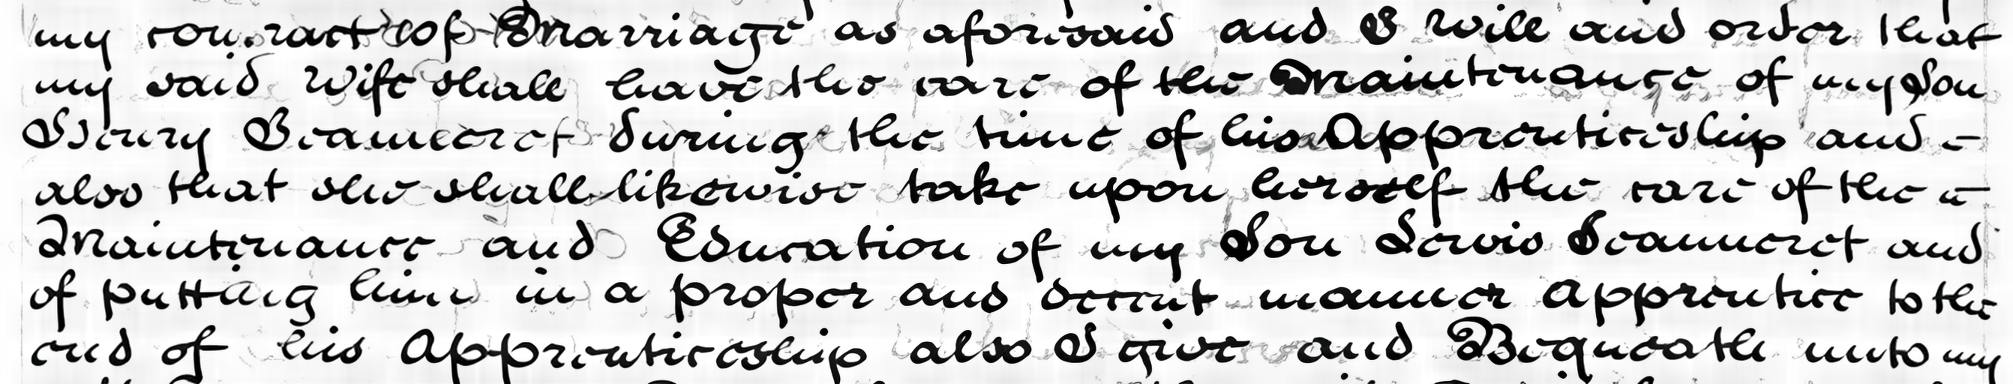 my contract of Marriage as aforesaid and I will and order that
my said Wife shall have the care of the Maintenance of my Son
Henry Jeanneret during the time of his Apprenticeship and
also that she shall likewise take upon herself the care of the
Maintenance and Education of my Son Lewis Jeanneret and
of putting him in a proper and decent manner Apprentice to the
end of his Apprenticeship also I give and Bequeath unto my